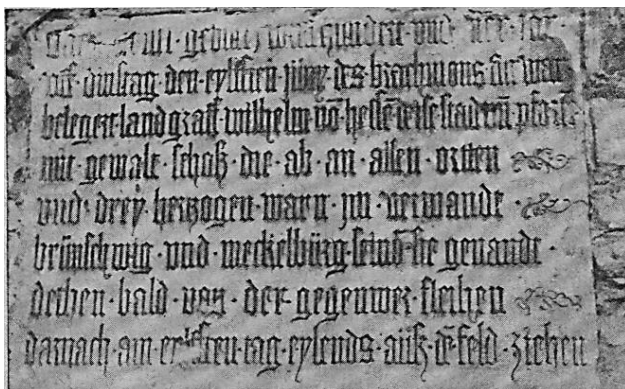 hundert · und · vier · jar
uff · dinstag · den · eylfften · des · brachmons · für · war
belegert · landgraff · wilhelm · vō · hessē
mit · gewalt · schoß · die · ab · an · allen · ortten
und · drey · herzogen · warn · jm · verwandt ·
brünschwig · und · meckelbürg · seind · sie · genandt ·
dethen · bald · von · der · gegenwer · fleihen
darnach · am · tag · eylends · auß · dē · feld · ziehen